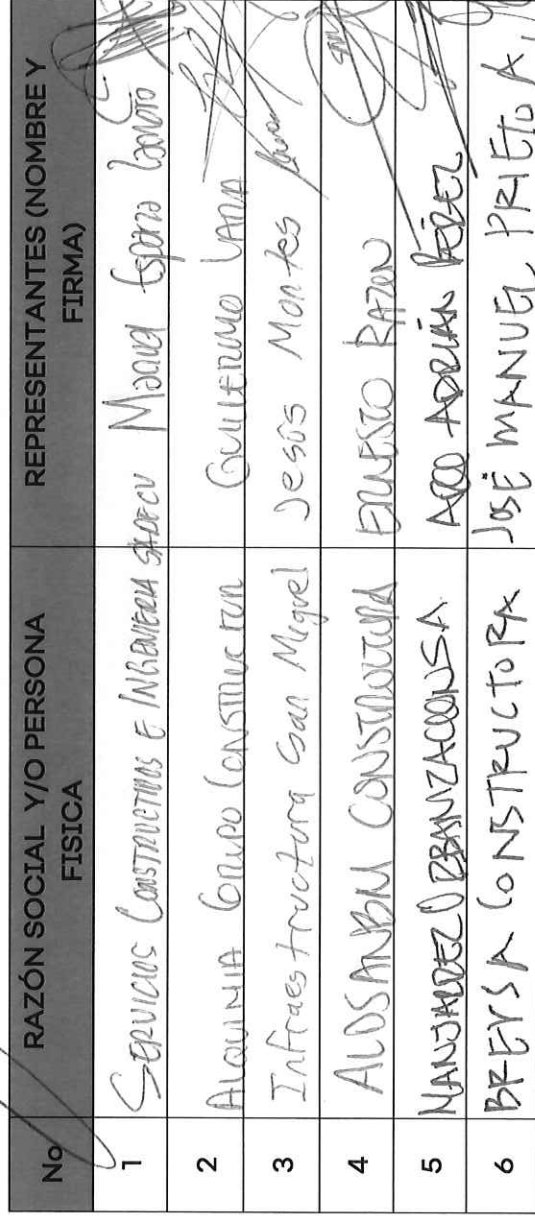 No RAZÓN SOCIAL Y/O PERSONA FISICA REPRESENTANTES (NOMBRE Y FIRMA)
1 SERVICIOS CONSTRUCTIVOS E INGENIERIA SADECV Manuel España
2 ALQUIMIA GRUPO CONSTRUCTOR GUILLERMO LARA
3 Infraestructura San Miguel Jesús Montes
4 ALOSANBM CONSTRUCTORA ERNESTO RAZON
5 ADRIÁN PÉREZ
6 CONSTRUCTORA JOSÉ MANUEL PRIETO A.